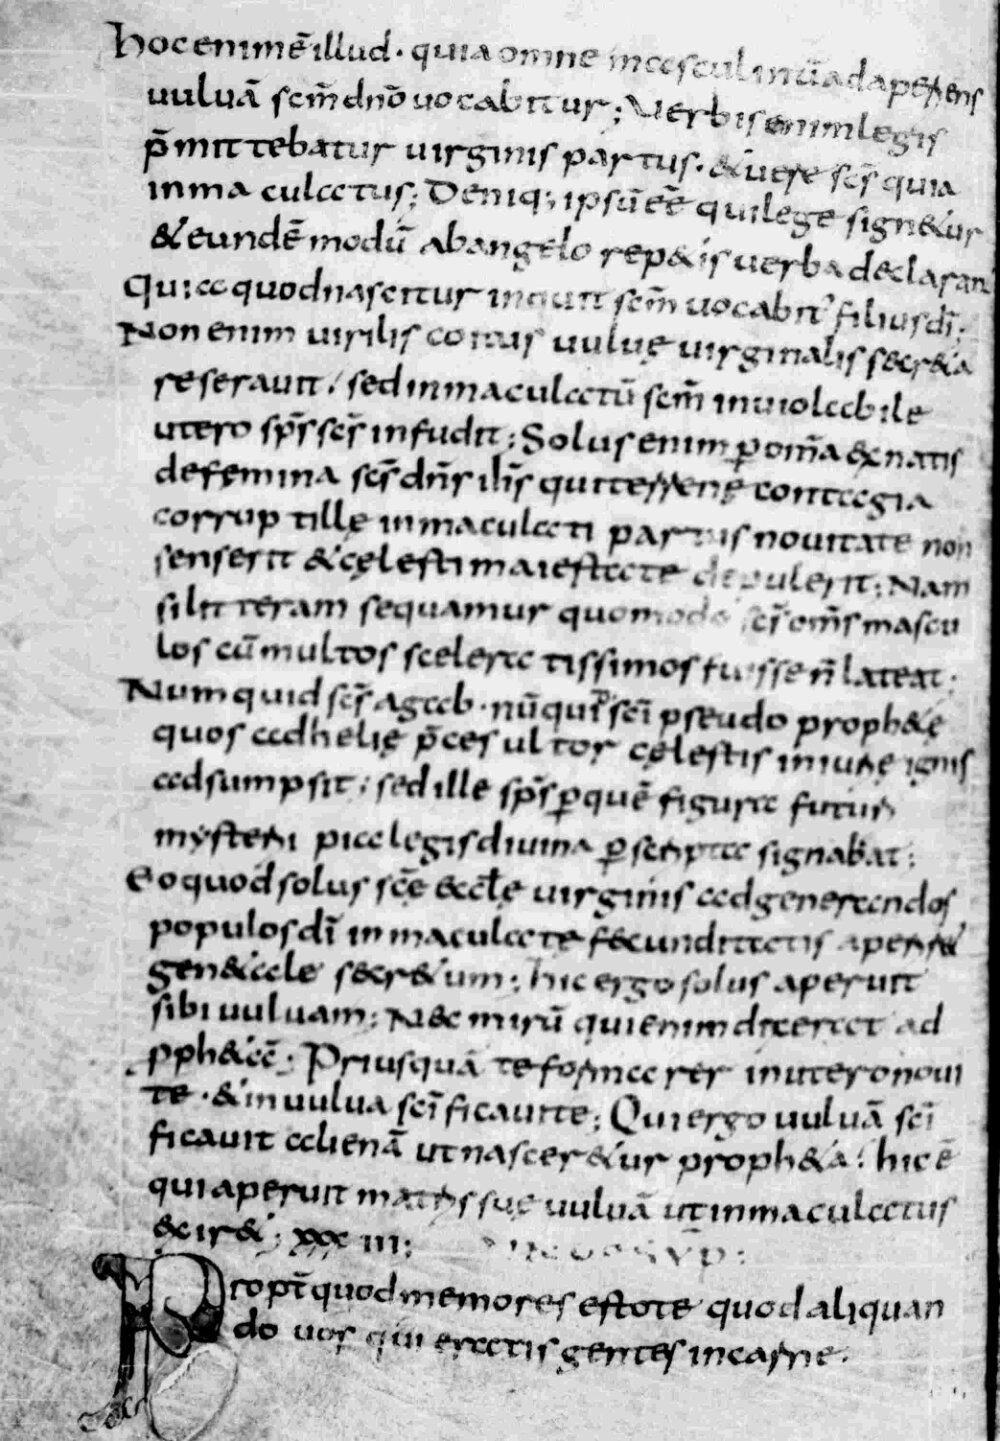 hoc enim ē illud · quia omne masculinū adaperiens
uuluā scm̄ dnō uocabitur ; Uerbis enim legis
p̄mittebatur uirginis partus · & uere scs̄ quia
inmaculatus ; Deniq ; ipsū eē qui lege sign&ur
& eundē modū ab angelo rep&itis uerba declarant
Quia quod nascitur inquit scm̄ uocabit filius dī ;
Non enim uirilis coitus uuluę uirginalis secr&a
reserauit / sed inmaculatū scm̄ inuiolabile
utero sps̄ scs̄ infudit ; Solus enim ꝑ om̄a ex natis
de femina scs̄ dns̄ ihs̄ qui terrenę contagia
corruptillę inmaculati partus nouitate non
senserit & cęlesti maiestate depulerit ; Nam
si litteram sequamur quomodo scs̄ om̄s mascu
los cū multos sceleratissimos fuisse n̄ lateat ·
Numquid scs̄ agab · nūquid scī pseudo proph&ę
quos ad helię p̄ces ultor cęlestis iniurię ignis
adsumpsit ; sed ille sps̄ ꝑ quē figura futuri
mysterii pia legis diuina ꝑ scripta signabat ;
Eo quod solus scē eccłę uirginis ad generandos
populos dī inmaculate fecunditatis aperir&
gen&ale secr&um ; hic ergo solus aperuit
sibi uuluam ; Nec mirū qui enim dicerat ad
pph&ā ; Priusquā te formarer in utero noui
te · & in uulua scīficauite ; Qui ergo uuluā scī
ficauit alienā ut nascer&ur proph&a : hic ē
qui aperuit matris suę uuluā ut inmaculatus
exir& ; xxx iii ;
Propt̄ quod memores estote quod aliquan
do uos qui eratis gentes in carne ·